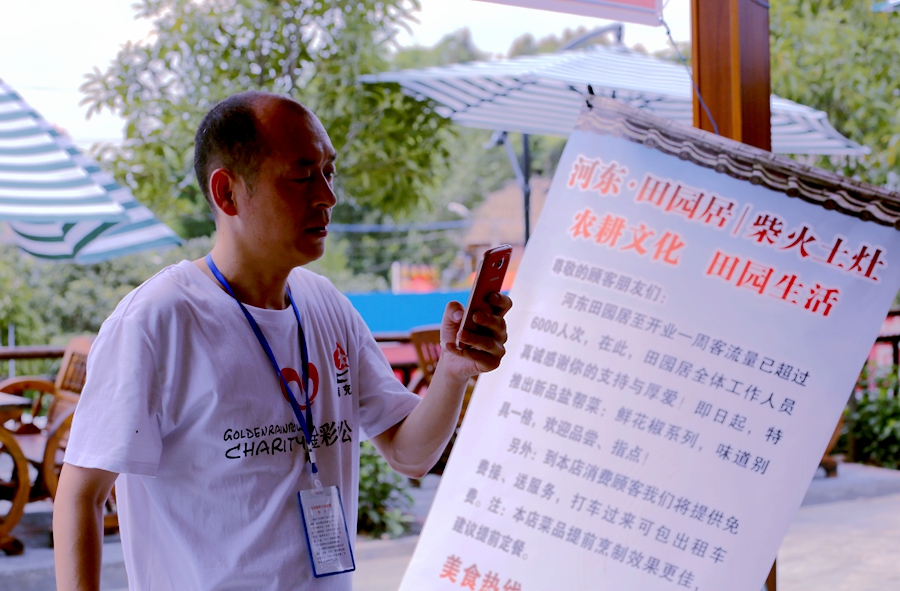 河东·田园居|柴火土灶
农耕文化 田园生活
尊敬的顾客朋友们：
河东田园居至开业一周客流量已超过
6000人次，在此，田园居全体工作人员
真诚感谢你的支持与厚爱！即日起，特
推出新品盐帮菜：鲜花椒系列，味道别
具一格，欢迎品尝、指点！
另外：到本店消费顾客我们将提供免
费接、送服务，打车过来可包出租车
费。注：本店菜品提前烹制效果更佳，
建议提前定餐。
美食热线
GOLDENRAINBOW
CHARITY 金彩公